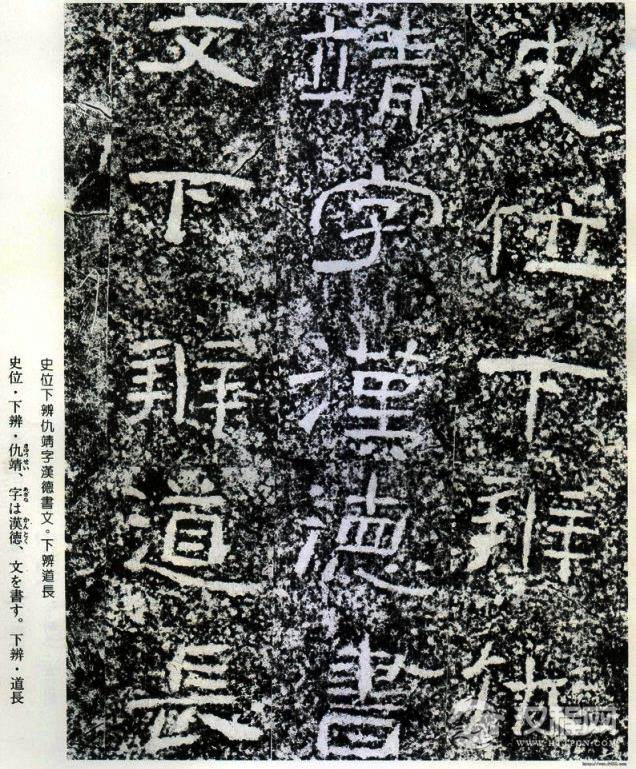 史位下辨仇
靖字漢德書
文下辨道長
史位下辨仇靖字漢德書文。下辨道長
史位・下辨・仇靖、字は漢德、文を書す。下辨・道長
汉程网
WWW.HTTPCN.COM